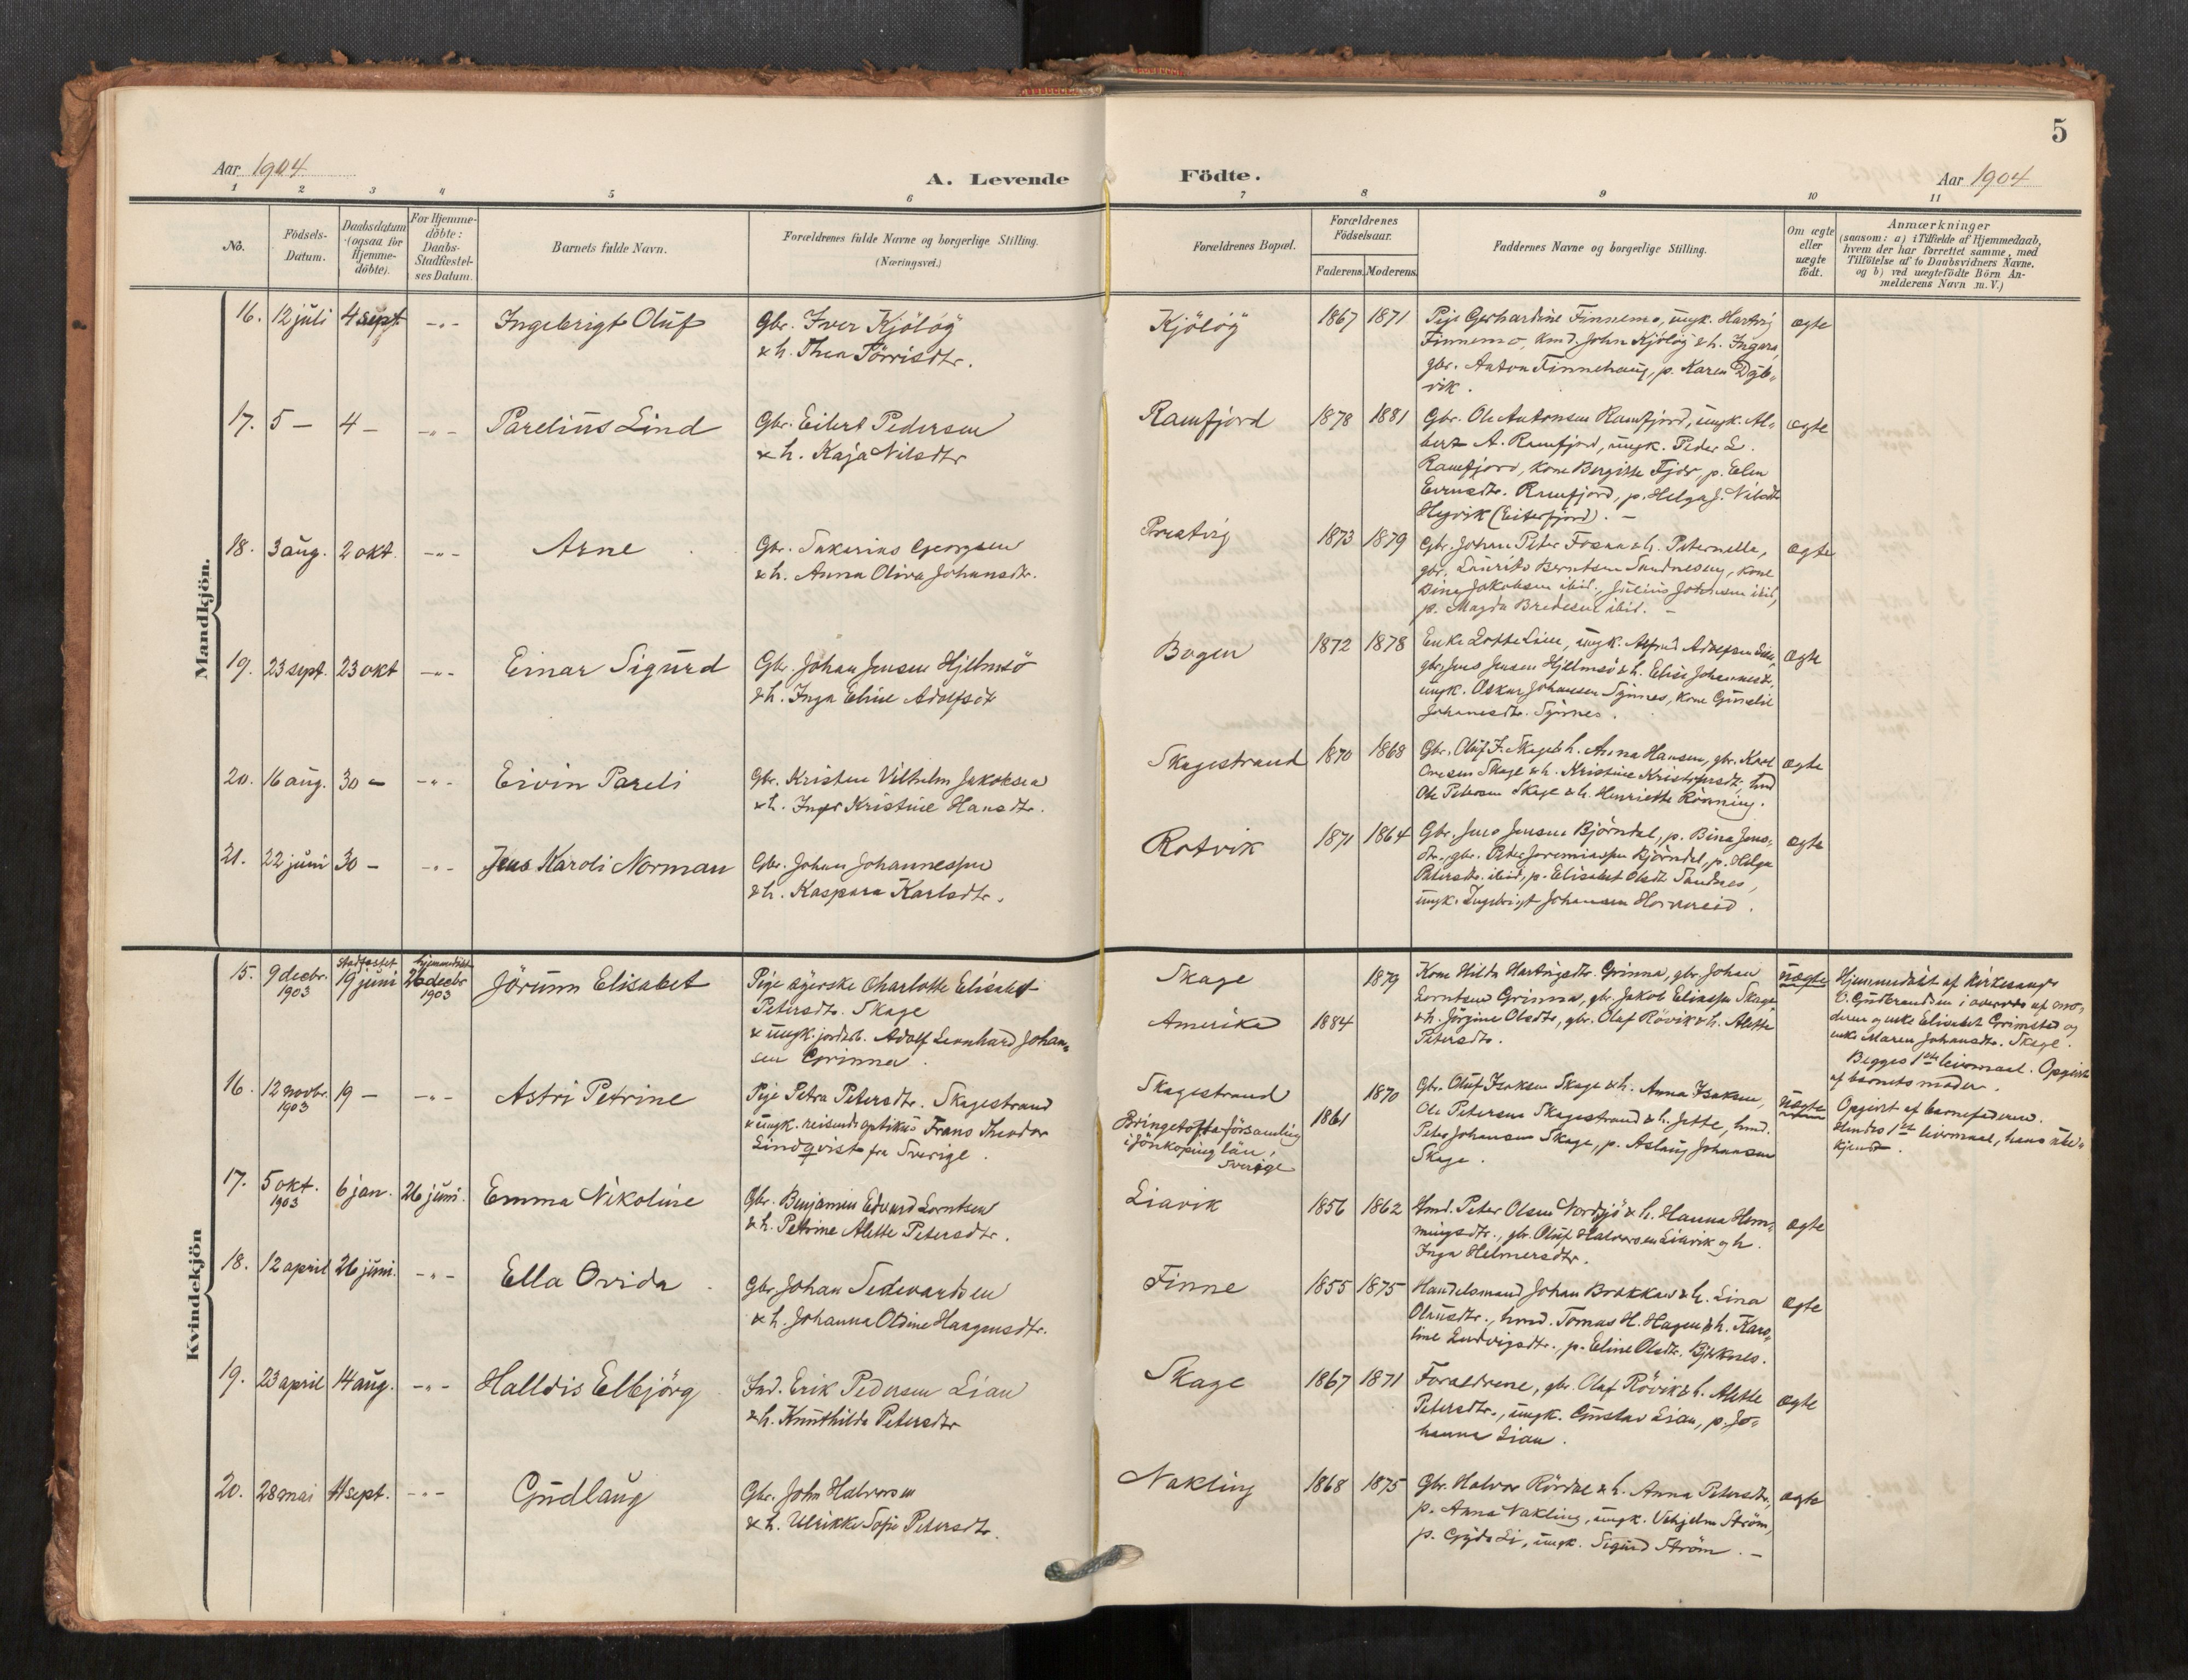 5
Aar 1904
A. Levende
Födte.
Aar 1904
1 2 3 4 5 6 7 8 9 10 11
No.
Födsels-
Datum.
Daabsdatum
(ogsaa för
Hjemme-
döbte).
For Hjemme-
döbte:
Daabs-
Stadfæstel-
ses Datum.
Barnets fulde Navn.
Forældrenes fulde Navne og borgerlige Stilling.
(Næringsvei.)
Forældrenes Bopæl.
Forældrenes
Födselsaar.
Faderens. Moderens.
Faddernes Navne og borgerlige Stilling.
Om ægte
eller
uægte
födt.
Anmærkninger
(saasom: a) i Tilfælde af Hjemmedaab,
hvem der har forrettet samme, med
Tilföielse af to Daabsvidners Navne.
og b) ved uægtefödte Börn An-
melderens Navn m. V.)
Mandkjön.
16. 12 juli 4 sept. -"- Ingebrigt Oluf
Gbr. Iver Kjölög
& h. Thea Törrisdtr.
Kjölög 1867 1871
Pige Gerhardine Finnemo, ungk. Hartvig
Finnemo, kmd. John Kjölög & h. Ingera,
gbr. Anton Finnehaug, p. Karen Dyb-
vik.
ægte
17. 5 - 4 - -"- Parelius Lind
Gbr. Eilert Pedersen
& h. Kaja Nilsdtr
Ramfjord 1878 1881
Gbr. Ole Antonsen Ramfjord, ungk. Al-
bert A. Ramfjord, ungk. Peder L.
Ramfjord, kone Bergitte Fjær, p. Elen
Evensdtr. Ramfjord, p. Helga J. Nilsdtr
Høyvik (Eiterfjord). -
ægte
18. 3 aug. 2 okt. -"- Arne
Gbr. Sakarias Georgsen
& h. Anna Oliva Johansdtr.
Præstvig 1873 1879
Gbr. Johan Peter Fosaa & h. Peternella,
gbr. Laurits Berntsen Sandnesøy, kone
Dina Jakobsen ibid., Julius Johansen ibid,
p. Magda Bredesen ibid. -
ægte
19. 23 sept. 23 okt -"- Einar Sigurd
Gbr. Johan Jensen Hjelmsö
& h. Inga Eline Adolfsdt
Bogen 1872 1878
Enke Lotte Lien, ungk. Alfred Adolfsen Lien,
gbr. Jens Jensen Hjelmsö & h. Elise Johannesdt.
ungk. Oskar Johansen Synnes, kone Gunelie
Johansdtr. Synnes.
ægte
20. 16 aug. 30 - -"- Eivin Pareli
Gbr. Kristen Vilhelm Jakobsen
& h. Inger Kristine Hansdtr.
Skagestrand 1870 1868
Gbr. Oluf I. Skage & h. Anna Hansen, gbr. Karl
Ovesen Skage & h. Kristine Kristofersdt, hmd
Ole Petersen Skage & h. Henriette Rönning.
ægte
21. 22 juni 30 - -"- Jens Karoli Norman
Gbr. Johan Johannessen
& h. Kaspara Karlsdtr.
Rotvik 1871 1864
Gbr. Jens Jensen Björndal, p. Bina Jens-
dtr., gbr. Peter Jeremiassen Björndal, p. Helga
Petersdtr. ibid, p. Elisabet Olsdt. Sandnes,
ungk. Ingebrigt Johansen Horvereid.
ægte
Kvindekjön
15. 9 decbr. 1903 stadfæstet 19 juni hjemmedöbt 26 decbr 1903 Jörunn Elisabet
Pige syerske Charlotte Elisabet
Petersdtr. Skage
& ungk. jordarb. Adolf Leonhard Johan-
sen Grinna.
Skage 1879
Amerika 1884
Kone Hilda Hartvigsdtr. Grinna, gbr. Johan
Lorntsen Grinna, gbr. Jakob Eliassen Skage
& h. Jörgine Olsdtr, gbr. Olaf Rövik & h. Alette
Petersdtr.
uægte
Hjemmedöbt af Kirkesanger
O. Gudbrandsen i overvær af mo-
deren og enke Elisabet Grimstad og
enke Maren Johansdtr. Skage.
Begges 1ste leiermaal. Opgivet
af barnets moder.
16. 12 novbr. 1903 19 - -"- Astri Petrine
Pige Petra Petersdtr. Skagestrand
& ungk. reisende optikus Frans Theodor
Lindqvist fra Sverige.
Skagestrand 1870
Bringetofta församling 1861
i Jönköping län,
Sverige
Gbr. Oluf Isaksen Skage & h. Anna Isaksen,
Ole Petersen Skagestrand & h. Jette, hmd.
Peter Johansen Skage, p. Aslaug Johansen
Skage.
uægte
Opgivet af barnefaderen.
Hendes 1ste leiermaal, hans ube-
kjendt.
17. 5 okt. 1903 6 jan. 26 juni. Emma Nikoline
Gbr. Benjamin Edvard Lorntsen
& h. Petrine Alette Petersdtr.
Liavik 1856 1862
Hmd. Peter Olsen Nordsjö & h. Hanna Hem-
mingsdtr., gbr. Oluf Halvorsen Liavik og h.
Inga Helmersdtr.
ægte
18. 12 april 26 juni. -"- Ella Ovida
Gbr. Johan Sedevardsen
& h. Johanna Oldine Haagensdtr.
Finne 1855 1875
Handelsmand Johan Brakkan & h. Lina
Olausdtr., hmd. Tomas H. Hagen & h. Karo-
line Ludvigsdtr., p. Eline Olsdtr. Björknes.
ægte
19. 23 april 14 aug. -"- Halldis Elbjörg
Ind. Erik Pedersen Lian
& h. Knuthilda Petersdtr
Skage 1867 1871
Forældrene, gbr. Olaf Rövik & h. Alette
Petersdtr., ungk. Gustav Lian, p. Jo-
hanna Lian.
ægte
20. 28 mai 4 sept. -"- Gudlaug
Gbr. John Halvorsen
& h. Ulrikke Sofie Petersdtr.
Nakling 1868 1875
Gbr. Halvor Rördal & h. Anna Petersdtr,
p. Anna Nakling, ungk. Vehjelm Ström,
p. Gyda Li, ungk. Sigurd Ström. -
ægte